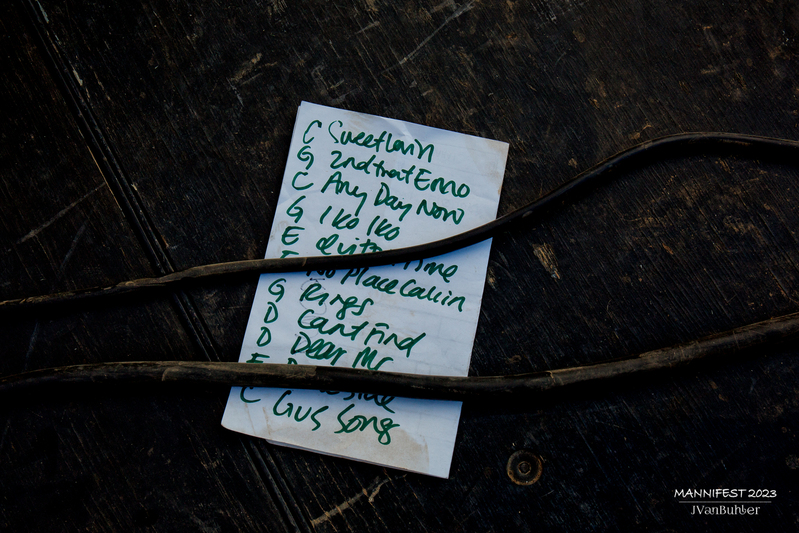 C Sweet Lorin
G 2nd that Emo
C Any Day Now
G Iko Iko
E Time
No Place Callin
G Rings
D Cant Find
D Dear Mr
E
side
C Gus Song
MANNIFEST 2023
JVanBuhler